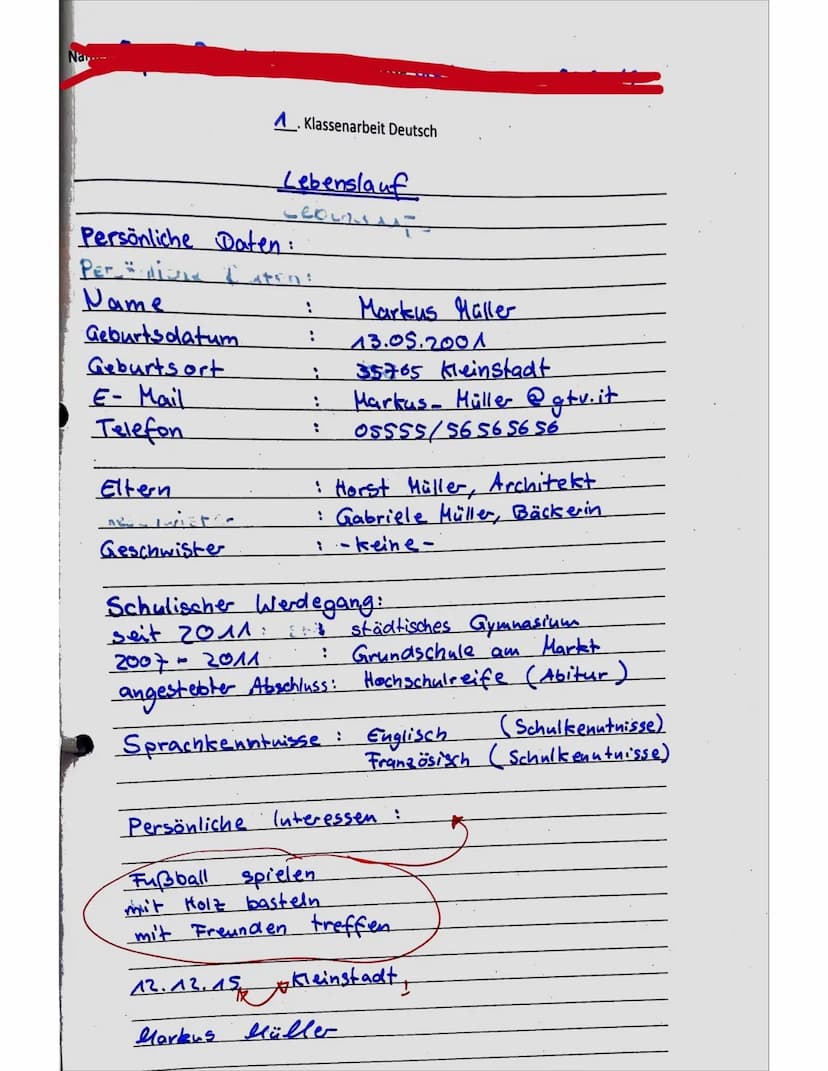 1. Klassenarbeit Deutsch
Lebenslauf
Persönliche Daten:
Name : Markus Müller
Geburtsdatum : 13.05.2001
Geburtsort : 35765 Kleinstadt
E-Mail : Markus-Müller@gtv.it
Telefon : 05555/56565656
Eltern : Horst Müller, Architekt
: Gabriele Müller, Bäckerin
Geschwister : -keine-
Schulischer Werdegang:
seit 2011: städtisches Gymnasium
2007 - 2011 : Grundschule am Markt
angestebter Abschluss: Hochschulreife (Abitur)
Sprachkenntnisse : Englisch (Schulkenutnisse)
Französisch (Schulkenutnisse)
Persönliche Interessen :
Fußball spielen
mit Holz basteln
mit Freunden treffen
12.12.15, Kleinstadt, !
Markus Müller